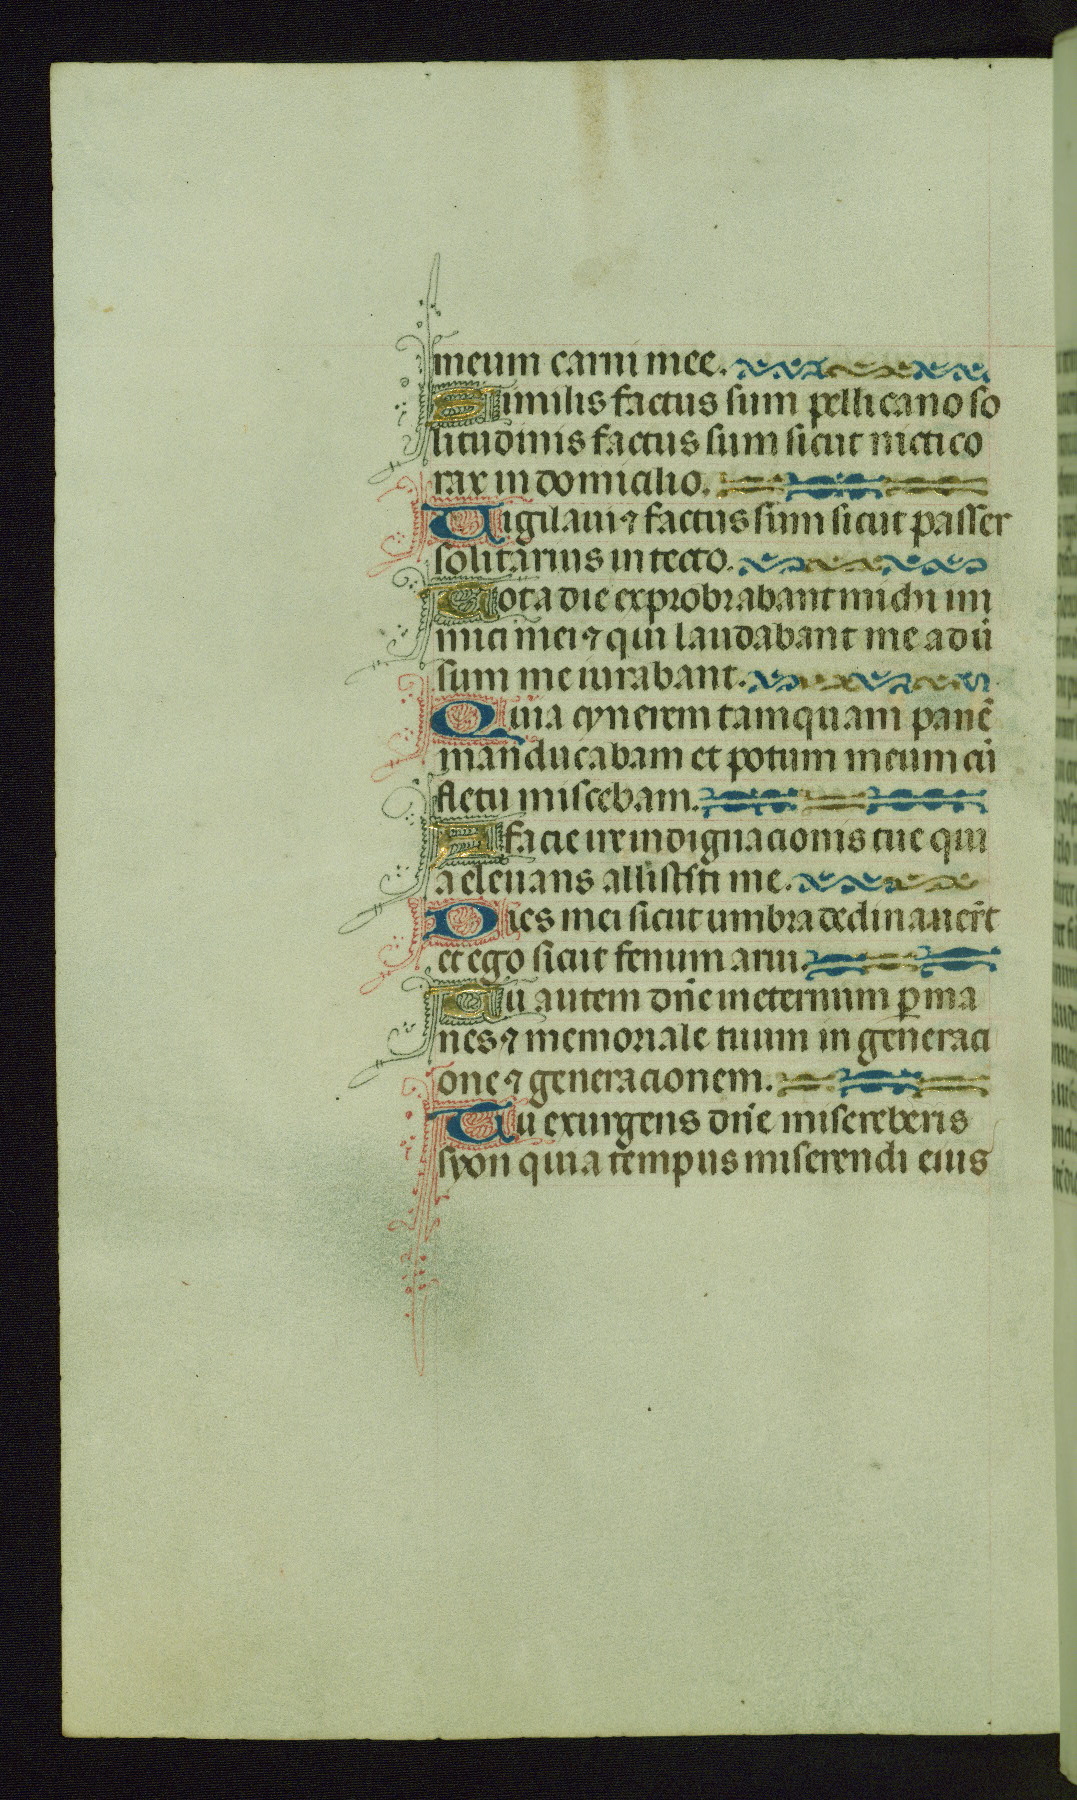 meum carni mee.
Similis factus sum pellicano so
litudinis factus sum sicut nictico
rax in domicilio.
Uigilaui ⁊ factus sum sicut passer
solitarius in tecto.
Tota die exprobrabant michi ini
mici mei ⁊ qui laudabant me adū
sum me iurabant.
Quia cynerem tamquam panē
manducabam et potum meum cū
fletu miscebam.
A facie ire indignacionis tue qui
a eleuans allisisti me.
Dies mei sicut umbra declinauer̄t
et ego sicut fenum arui.
Tu autem dn̄e in eternum ꝑma
nes ⁊ memoriale tuum in generaci
one ⁊ generacionem.
Tu exurgens dn̄e misereberis
syon quia tempus miserendi eius